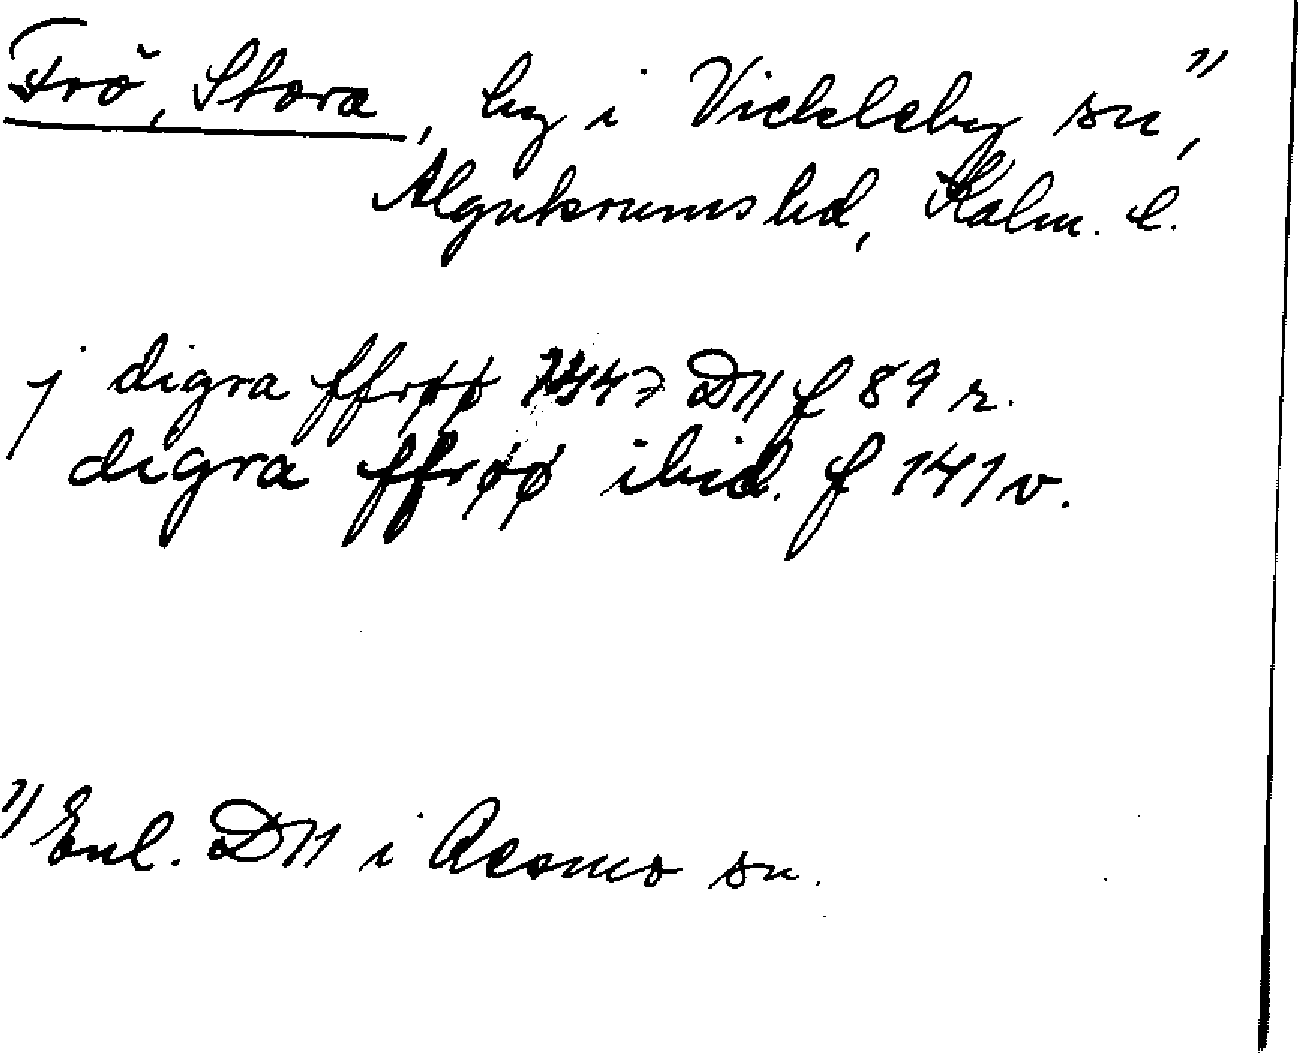 Frö, Stora, by i Vickleby sn, 1)
Algutsrums hd, Kalm. l.
j digra ffrøø 1447 D11 f 89 r.
digra ffrøø ibid. f 141 v.
1) Enl. D11 i Resmo sn.